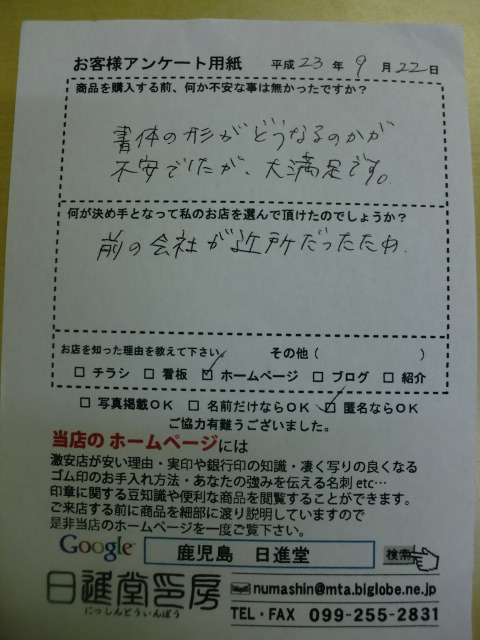 お客様アンケート用紙 平成23年9月22日
商品を購入する前、何か不安な事は無かったですか？
書体の形がどうなるのかが
不安でしたが、大満足です。
何が決め手となって私のお店を選んで頂けたのでしょうか？
前の会社が近所だったため.
お店を知った理由を教えて下さい。 その他（ ）
□ チラシ □ 看板 ☑ ホームページ □ ブログ □ 紹介
□ 写真掲載OK □ 名前だけならOK ☑ 匿名ならOK
ご協力有難うございました。
当店の ホームページには
激安店が安い理由・実印や銀行印の知識・凄く写りの良くなる
ゴム印のお手入れ方法・あなたの強みを伝える名刺 etc…
印章に関する豆知識や便利な商品を閲覧することができます。
ご来店する前に商品を細部に渡り説明していますので
是非当店のホームページを一度ご覧下さい。
Google 鹿児島 日進堂 検索
日進堂印房
にっしんどういんぼう
numashin@mta.biglobe.ne.jp
TEL・FAX 099-255-2831